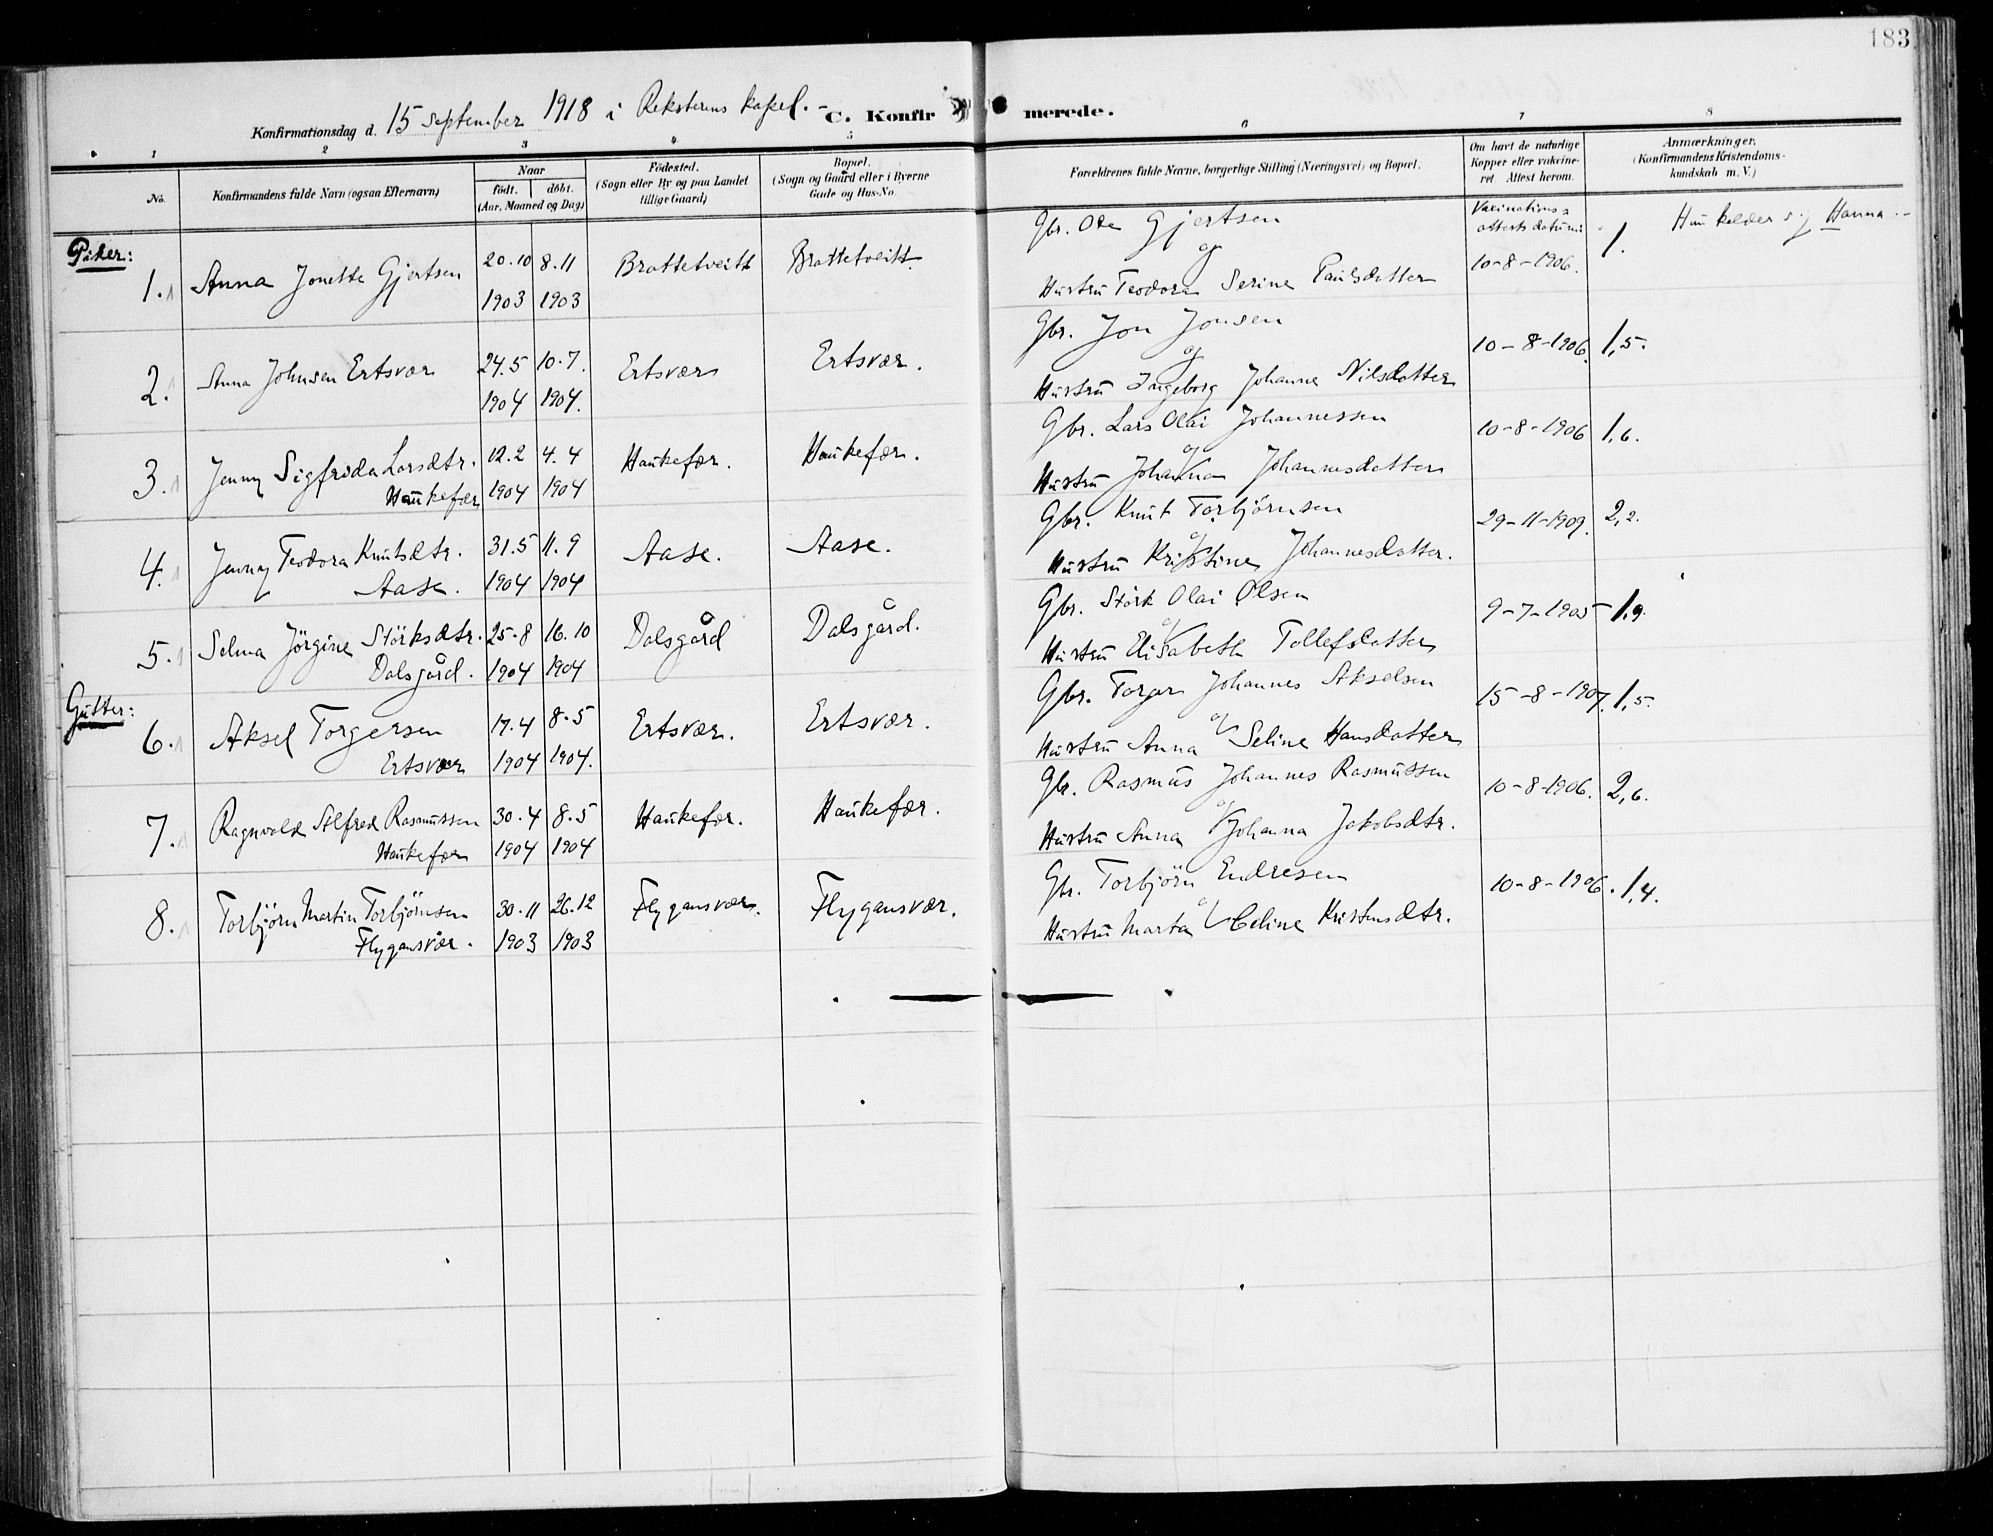 183
Konfirmationsdag d. 15 September 1918 i Reksterens kapel. - C. Konfirmerede.
1 2 3 4 5 6 7 8
No.
Konfirmandens fulde Navn (ogsaa Efternavn)
Naar
födt. döbt.
(Aar, Maaned og Dag)
Födested.
(Sogn eller By og paa Landet
tillige Gaard)
Bopæl.
(Sogn og Gaard eller i Byerne
Gade og Hus-No.
Forældrenes fulde Navne, borgerlige Stilling (Næringsvei) og Bopæl.
Om havt de naturlige
Kopper eller vakcine-
ret. Attest herom.
Anmærkninger.
(Konfirmandens Kristendoms-
kundskab m. V.)
Piker:
1. Anna Jonette Gjertsen 20.10 1903 8.11 1903 Brattetveitt Brattetveitt.
Gbr. Ole Gjertsen
og
Hustru Teodora Serine Paulsdatter
Vaksinations-
attests datum:
10-8-1906. 1.
Hun kalder sig Hanna.-
2. Anna Johnsen Ertsvær 24.5 1904 10.7. 1904. Ertsvær Ertsvær.
Gbr. Jon Jonsen
og
Hustru Ingeborg Johanne Nilsdatter
10-8-1906. 1,5.
3. Jenny Sigfrida Larsdtr.
Haukefær 12.2 1904 4.4 1904 Haukefær. Haukefær.
Gbr. Lars Olai Johannessen
og
Hustru Johanna Johannesdatter
10-8-1906 1,6.
4. Jenny Teodora Knutsdtr.
Aase. 31.5 1904 11.9 1904 Aase. Aase.
Gbr. Knut Torbjörnsen
og
Hustru Kristine Johannesdatter.
29-11-1909. 2,2.
5. Selma Jörgine Störksdtr.
Dalsgård. 25.8 1904 16.10 1904 Dalsgård Dalsgård.
Gbr. Störk Olai Olsen
og
Hustru Elisabeth Tollefsdatter
9-7-1905 1,9.
Gutter:
6. Aksel Torgersen
Ertsvær 17.4 1904 8.5 1904. Ertsvær. Ertsvær.
Gbr. Torger Johannes Akselsen
og
Hustru Anna Seline Hansdatter
15-8-1907. 1,5.
7. Ragnvald Alfred Rasmussen
Haukefær 30.4 1904 8.5 1904 Haukefær. Haukefær.
Gbr. Rasmus Johannes Rasmussen
og
Hustru Anna Johanna Jakobsdtr.
10-8-1906. 2,6.
8. Torbjörn Martin Torbjörnsen
Flygansvær. 30.11 1903 26.12 1903 Flygansvær. Flygansvær.
Gbr. Torbjörn Endresen
og
Hustru Marta Celine Kristensdtr.
10-8-1906. 1,4.